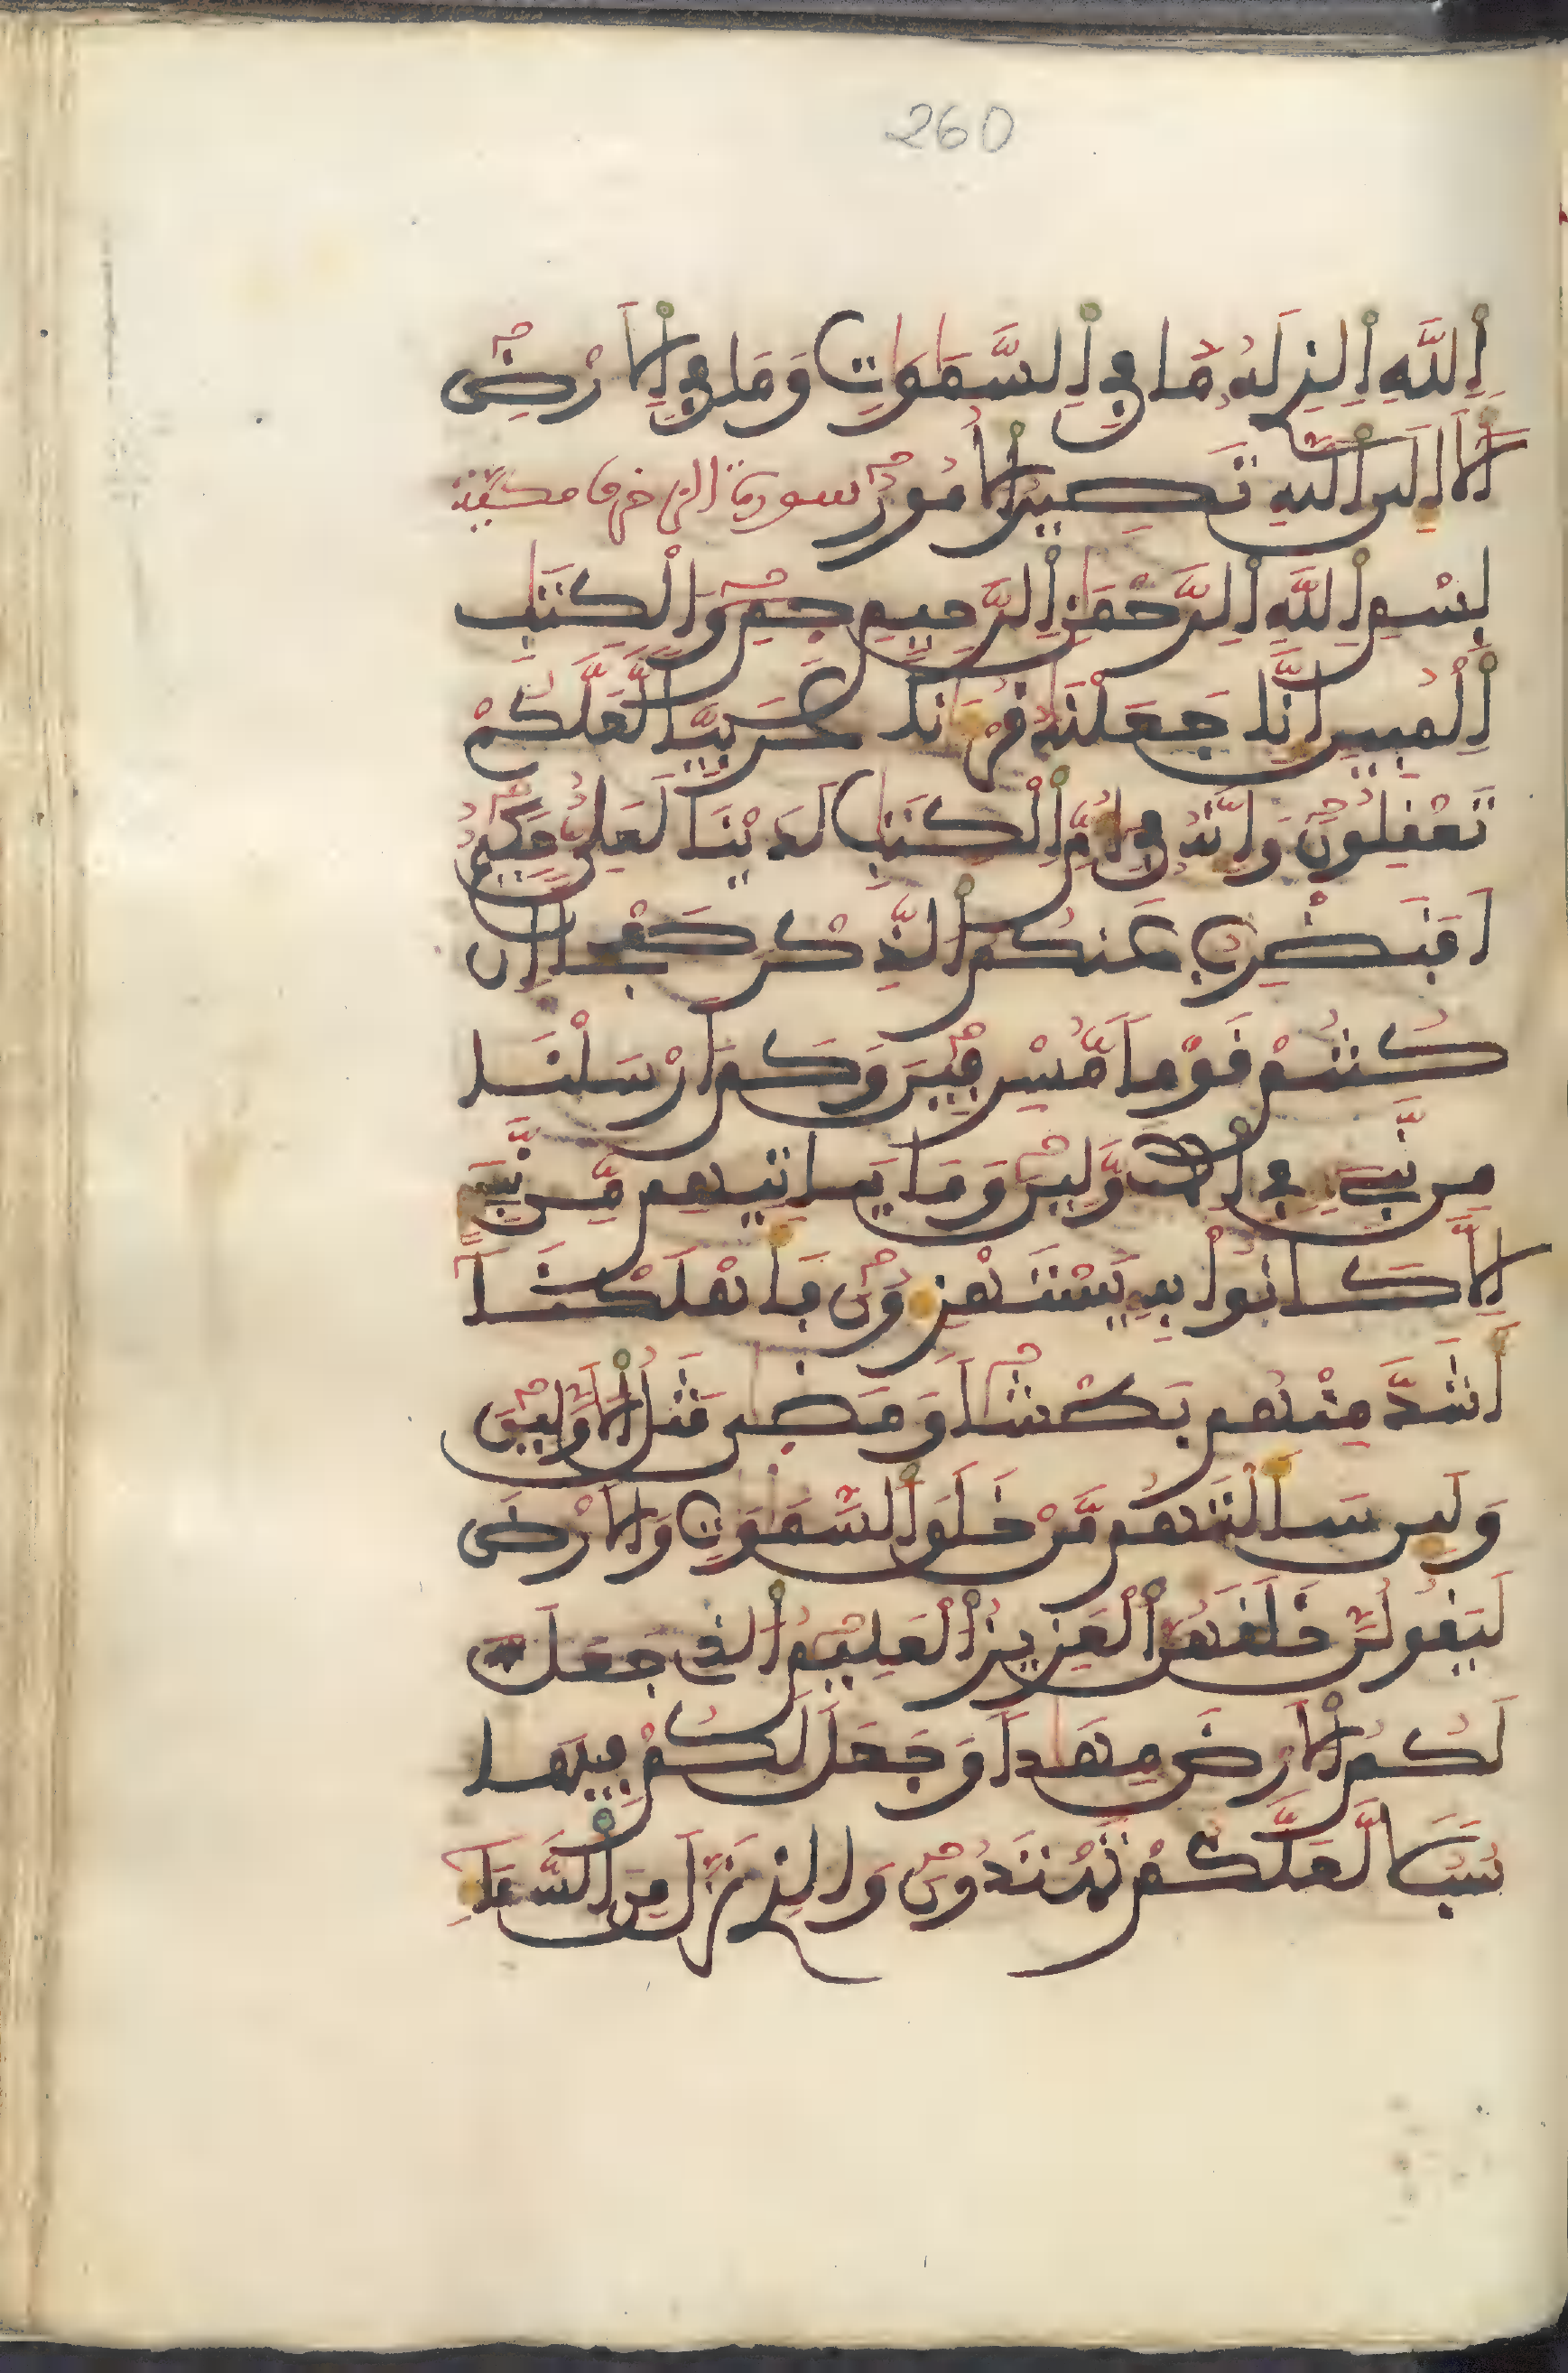 260
اِ۬للَّهِ اِ۬لذِے لَهُۥ مَا فِے اِ۬لسَّمَٰوَٰتِ وَمَا فِے اِ۬لَارْضِ
أَلَآ إِلَي اَ۬للَّهِ تَصِيرُ اُ۬لُامُورُ سورة الزخرف مكية
بِسْمِ اِ۬للَّهِ اِ۬لرَّحْمَٰنِ اِ۬لرَّحِيمِ حمٓ وَالْكِتَٰبِ
اِ۬لْمُبِينِ إِنَّا جَعَلْنَٰهُ قُرْءَٰناً عَرَبِيّاً لَّعَلَّكُمْ
تَعْقِلُونَ وَإِنَّهُۥ فِےٓ أُمِّ اِ۬لْكِتَٰبِ لَدَيْنَا لَعَلِيٌّ حَكِيمٌ
اَفَنَضْرِبُ عَنكُمُ اُ۬لذِّكْرَ صَفْحاً اِن
كُنتُمْ قَوْماً مُّسْرِفِينَ وَكَمَ اَرْسَلْنَا
مِن نَّبِےٓءٖ فِے اِ۬لَاوَّلِينَ وَمَا يَاتِيهِم مِّن نَّبِےٓءٍ
اِلَّا كَانُواْ بِهِۦ يَسْتَهْزِءُونَ فَأَهْلَكْنَآ
أَشَدَّ مِنْهُم بَطْشاً وَمَضَىٰ مَثَلُ اُ۬لَاوَّلِينَ
وَلَئِن سَأَلْتَهُم مَّنْ خَلَقَ اَ۬لسَّمَٰوَٰتِ وَالَارْضَ
لَيَقُولُنَّ خَلَقَهُنَّ اَ۬لْعَزِيزُ اُ۬لْعَلِيمُ اُ۬لذِے جَعَلَ
لَكُمُ اُ۬لَارْضَ مِهَٰداً وَجَعَلَ لَكُمْ فِيهَا
سُبُلاً لَّعَلَّكُمْ تَهْتَدُونَ وَالذِے نَزَّلَ مِنَ اَ۬لسَّمَآءِ